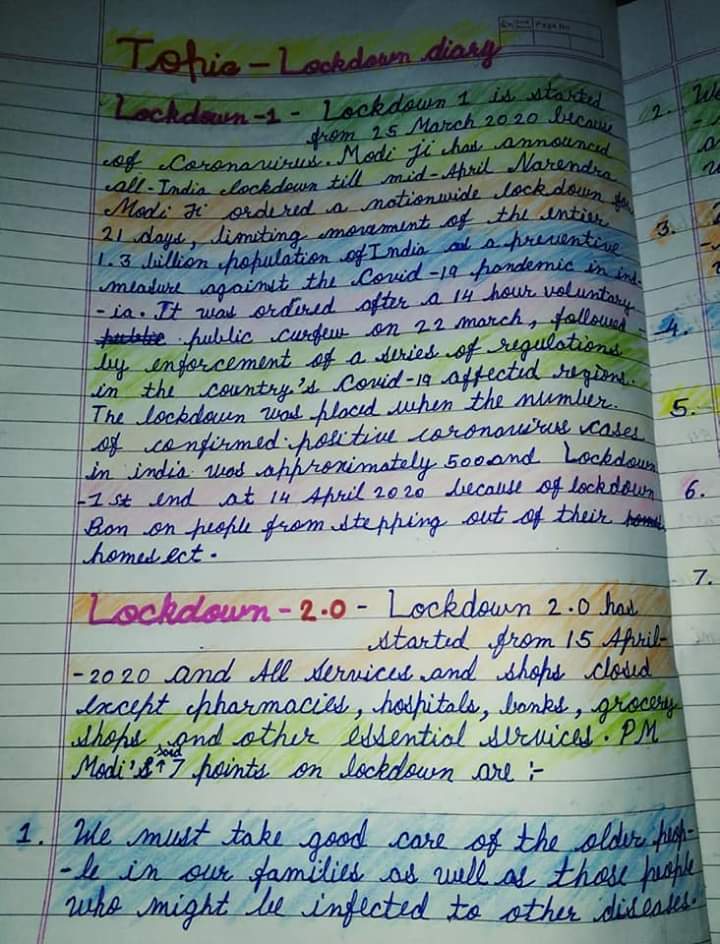 Topic - Lockdown diary
Lockdown -1 - Lockdown 1 is started
from 25 March 2020 because
of Coronavirus. Modi ji has announced
all-India lockdown till mid-April Narendra
Modi Ji ordered a nationwide lockdown for
21 days, limiting movement of the entier
1.3 billion population of India as a preventive
measure against the Covid-19 pandemic in ind-
-ia. It was ordered after a 14 hour voluntary
public curfew on 22 march, followed
by enforcement of a series of regulations
in the country's Covid-19 affected regions.
The lockdown was placed when the number
of confirmed positive coronavirus cases
in india was approximately 500 and Lockdown
-1 st end at 14 April 2020 because of lockdown
Ban on people from stepping out of their
homes ect.
Lockdown - 2.0 - Lockdown 2.0 has
started from 15 April-
-2020 and All services and shops closed
except pharmacies, hospitals, banks, grocery
shops and other essential services. PM
said
Modi's ↑ 7 points on lockdown are :-
1. We must take good care of the older peop-
-le in our families as well as those people
who might be infected to other diseases.
2. We
3.
4.
5.
6.
7.